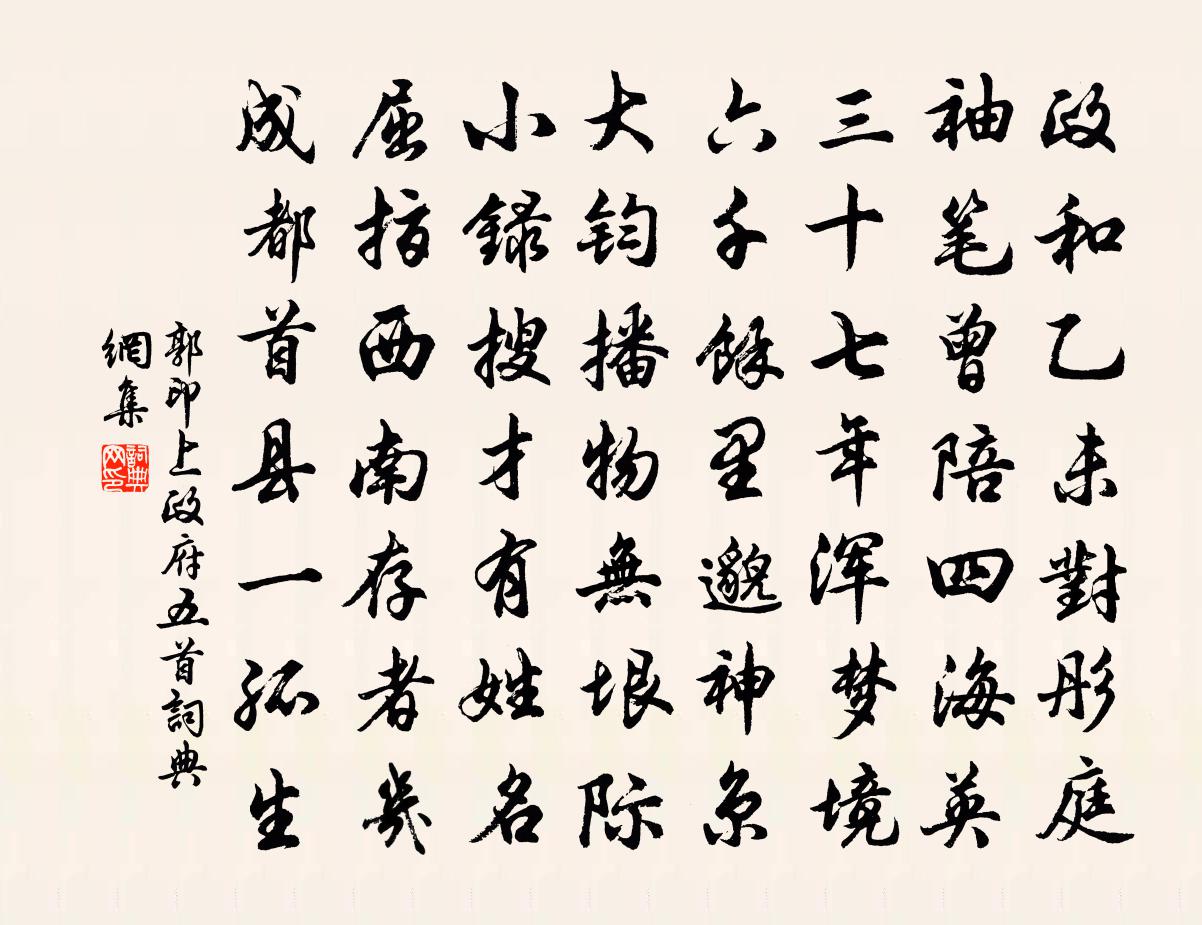 政和乙未對彤庭
袖笔曾陪四海英
三十七年浑梦境
六千餘里邈神京
大钧播物無垠际
小錄搜才有姓名
屈指西南存者幾
成都首县一孤生
郭印上政府五首詞典
網集
詞典网印